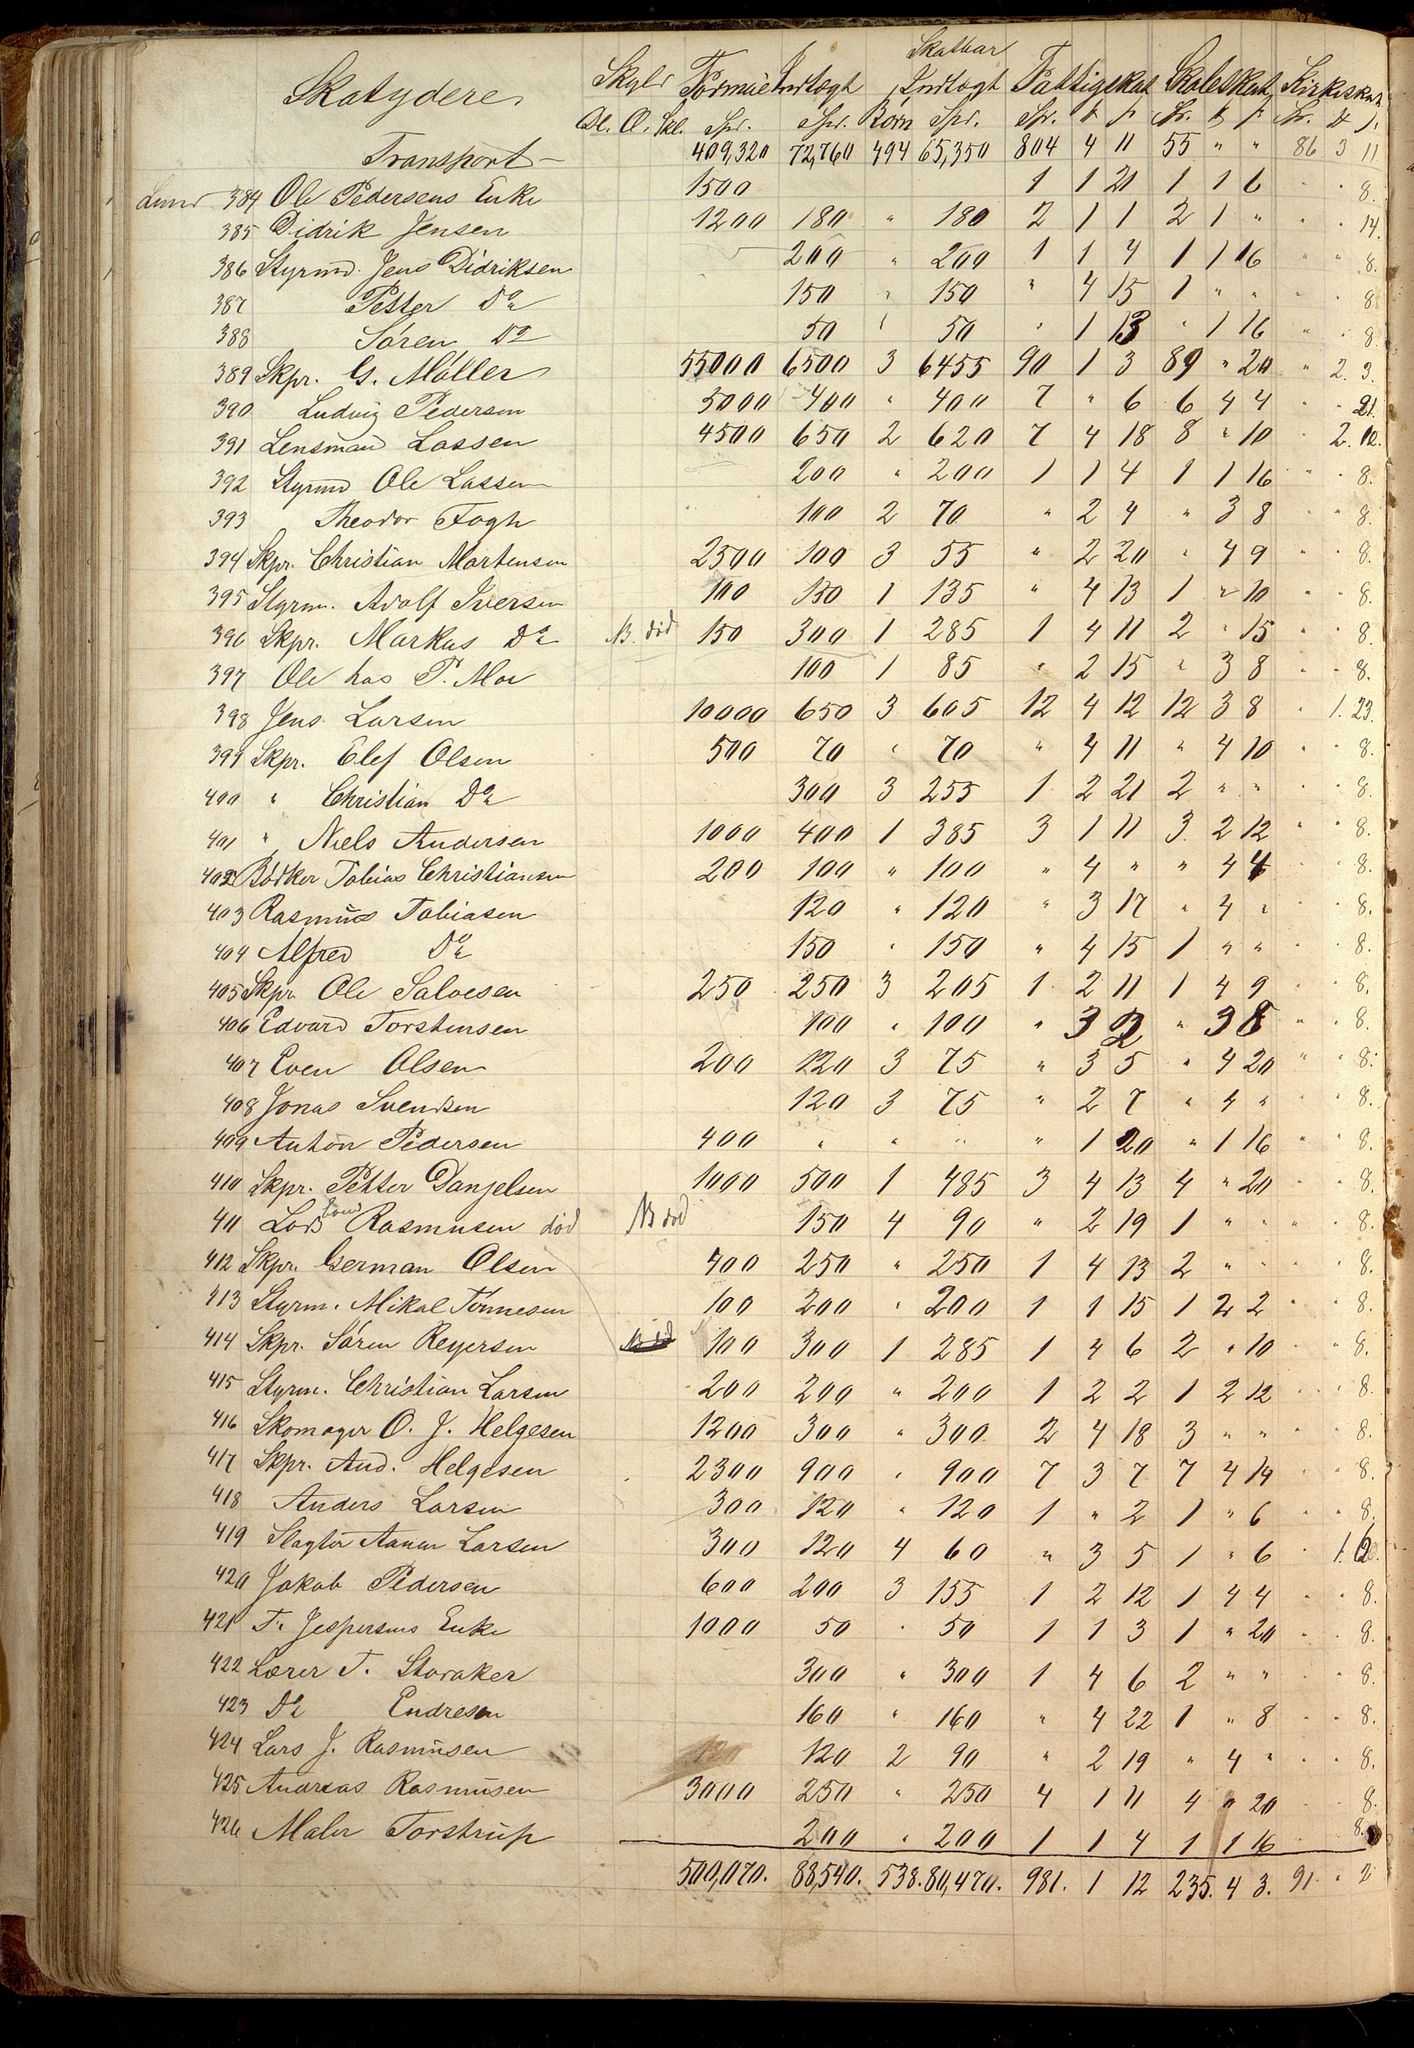 Skatydere Skyld Formue Indtægt Skatbar Indtægt Fattigskat Skoleskat Kirkeskat
Dl. O. Skl. Spr. Spr. Børn Spr. Spr. Spr. Spr.
Transport 409,320 72,760 494 65,350 804 4 11 55 " " 86 3 11
Lund 384 Ole Pedersens Enke 1500 1 1 21 1 1 6 " " 8.
385 Didrik Jensen 1200 180 " 180 2 1 1 2 1 " " " 14.
386 Styrmd. Jens Didriksen 200 " 200 1 1 4 1 1 16 " " 8.
387 Petter Do 150 " 150 " 4 15 1 " " " " 8.
388 Søren Do 50 " 50 " 1 13 " 1 16 " " 8.
389 Skpr. G. Møller 55000 6500 3 6455 90 1 3 89 " 20 " 2. 3.
390 Ludvig Pedersen 5000 400 " 400 7 " 6 6 4 4 " " 21.
391 Lensmand Lassen 4500 650 2 620 7 4 18 8 " 10 " 2. 12.
392 Styrmd Ole Lassen 200 " 200 1 1 4 1 1 16 " " 8.
393 Theodor Fogh 100 2 70 " 2 4 " 3 8 " " 8.
394 Skpr. Christian Mortensen 2500 100 3 55 " 2 20 " 4 9 " " 8.
395 Styrm. Adolf Iversen 100 150 1 135 " 4 13 1 " 10 " " 8.
396 Skpr. Markus Do NB. død 150 300 1 285 1 4 11 2 " 15 " " 8.
397 Ole hos P. Moe 100 1 85 " 2 15 " 3 8 " " 8.
398 Jens Larsen 10000 650 3 605 12 4 12 12 3 8 " 1. 23.
399 Skpr. Elef Olsen 500 70 " 70 " 4 11 " 4 10 " " 8.
400 " Christian Do 300 3 255 1 2 21 2 " " " " 8.
401 " Niels Andersen 1000 400 1 385 3 1 11 3 2 12 " " 8.
402 Bödker Tobias Christiansen 200 100 " 100 " 4 " " 4 4 " " 8.
403 Rasmus Tobiasen 120 " 120 " 3 17 " 4 " " " 8.
404 Alfred Do 150 " 150 " 4 15 1 " " " " 8.
405 Skpr Ole Salvesen 250 250 3 205 1 2 11 1 4 9 " " 8.
406 Edvard Torstensen 100 " 100 " 3 2 " 3 8 " " 8.
407 Even Olsen 200 120 3 75 " 3 5 " 4 20 " " 8.
408 Jonas Svendsen 120 3 75 " 2 7 " 4 " " " 8.
409 Anton Pedersen 400 " " " " 1 20 " 1 16 " " 8.
410 Skpr. Petter Danjelsen 1000 500 1 485 3 4 13 4 " 20 " " 8.
411 Lods Rasmusen død NB død 150 4 90 " 2 19 1 " " " " 8.
412 Skpr. German Olsen 400 250 " 250 1 4 13 2 " " " " 8.
413 Styrm. Mikal Tönnesen 100 200 " 200 1 1 15 1 2 2 " " 8.
414 Skpr. Sören Reyersen 100 300 1 285 1 4 6 2 " 10 " " 8.
415 Styrm. Christian Larsen 200 200 " 200 1 2 2 1 2 12 " " 8.
416 Skomager O. J. Helgesen 1200 300 " 300 2 4 18 3 " " " " 8.
417 Skpr. And. Helgesen 2300 900 " 900 7 3 7 7 4 14 " " 8.
418 Anders Larsen 300 120 " 120 1 " 2 1 " 6 " " 8.
419 Slagter Aanen Larsen 300 120 4 60 " 3 5 1 " 6 " 1.
420 Jakob Pedersen 600 200 3 155 1 2 12 1 4 4 " " 8.
421 T. Jespersens Enke 1000 50 " 50 1 1 3 1 " 20 " " 8.
422 Lærer T. Storaker 300 " 300 1 4 6 2 " " " " 8.
423 Do Endresen 160 " 160 " 4 22 1 " 8 " " 8.
424 Lars J. Rasmusen 120 120 2 90 " 2 19 " 4 " " " 8.
425 Andreas Rasmusen 3000 250 " 250 4 1 11 4 " 20 " " 8.
426 Maler Torstrup 200 " 200 1 1 4 1 1 16 " " 8.
500,070. 88,540. 538. 80,470. 981. 1 12 235. 4 3. 91 " 2